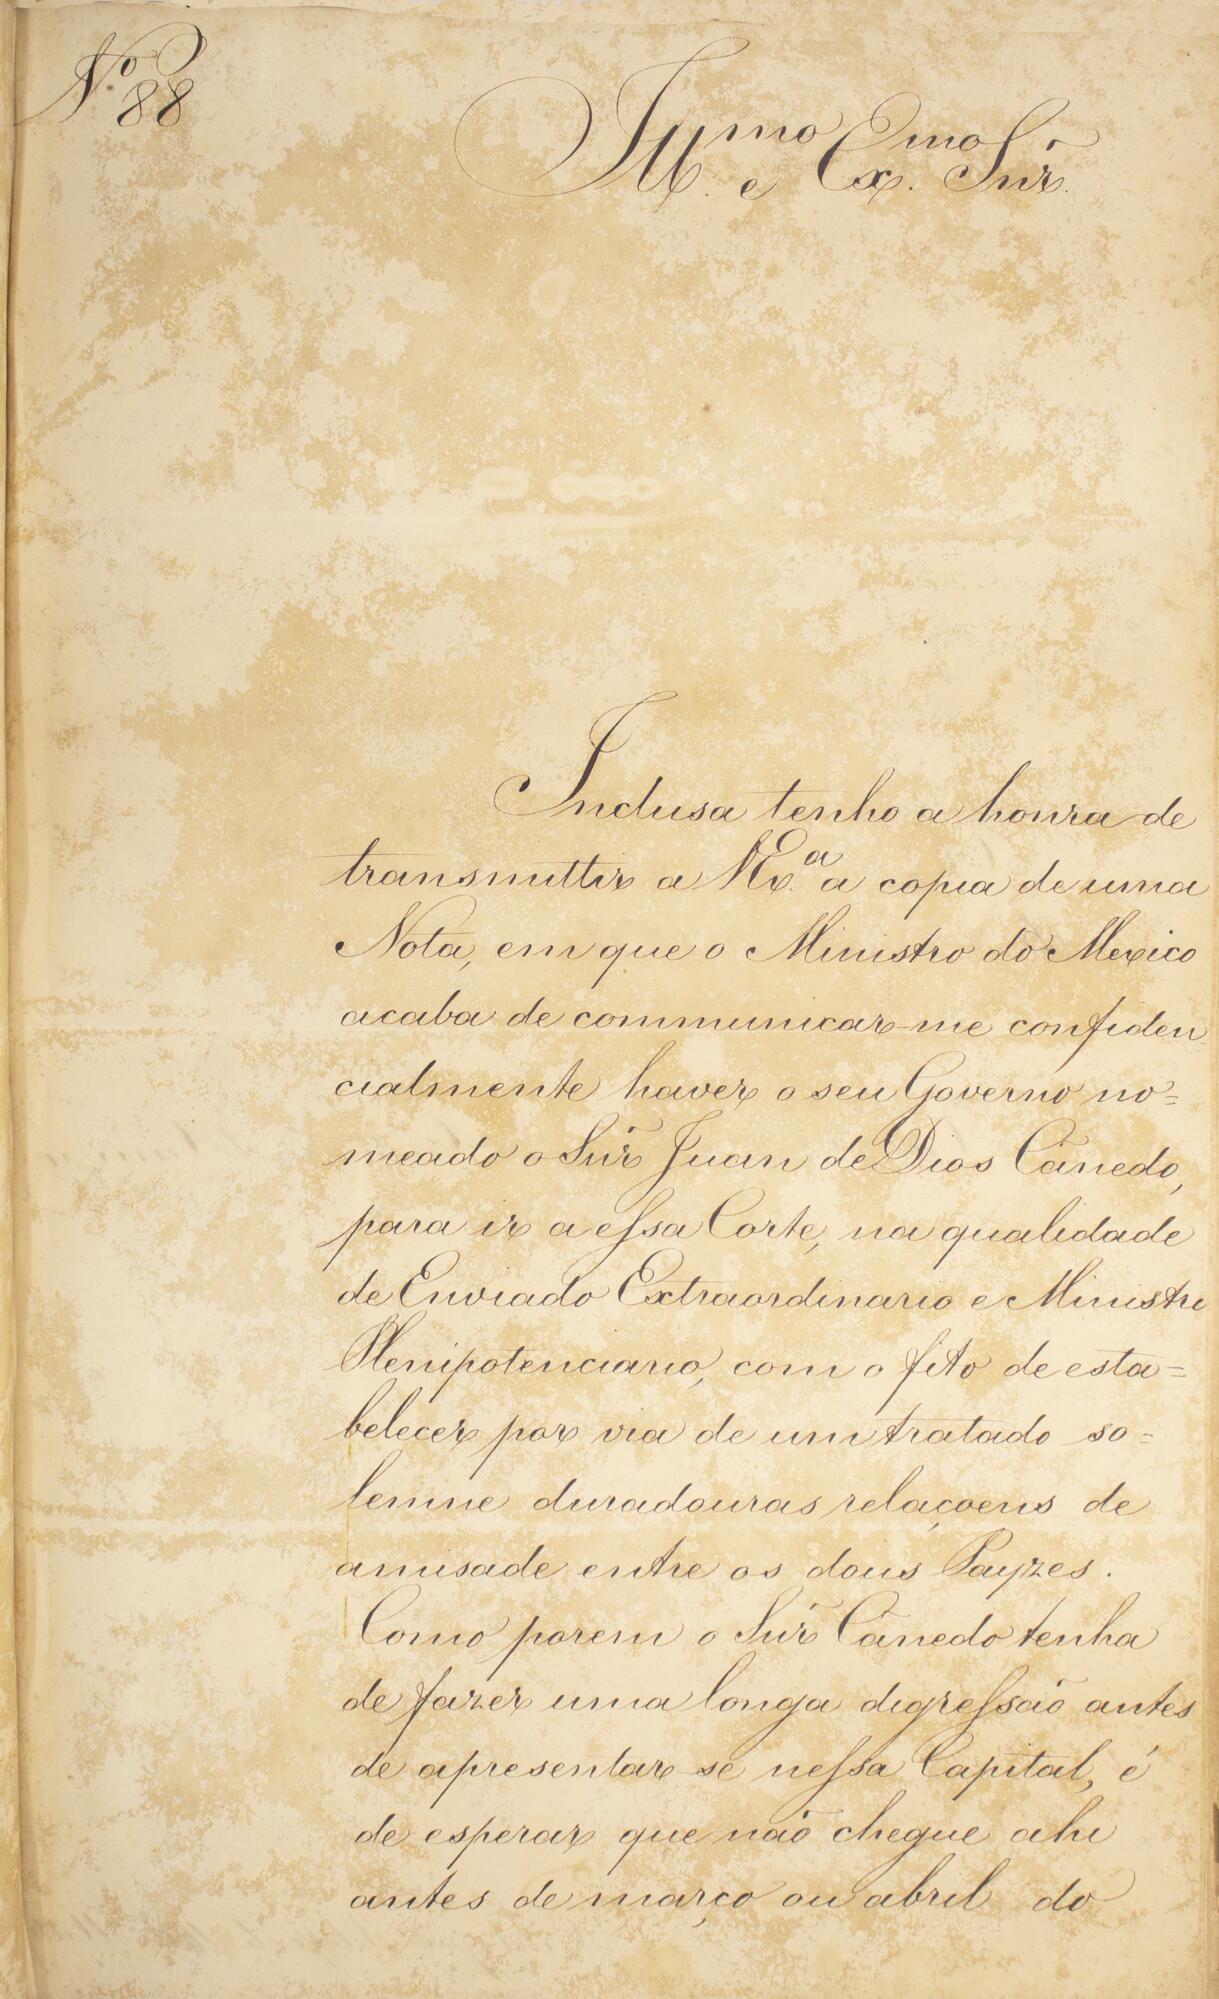 Nº 88
Illmo. e Exmo. Snr.
Inclusa tenho a honra de
transmittir a VEx.ª a copia de uma
Nota, em que o Ministro do Mexico
acaba de communicar-me confiden
cialmente haver o seu Governo no=
meado o Snr Juan de Dios Cãnedo,
para ir a essa Corte, na qualidade
de Enviado Extraordinario e Ministro
Plenipotenciario, com o fito de esta=
belecer por via de um tratado so=
lemne duradouras relaçoens de
amisade entre os dous Payzes.
Como porem o Snr Cãnedo tenha
de fazer uma longa digressão antes
de apresentar-se nessa Capital, é
de esperar que não chegue ahi
antes de março ou abril do